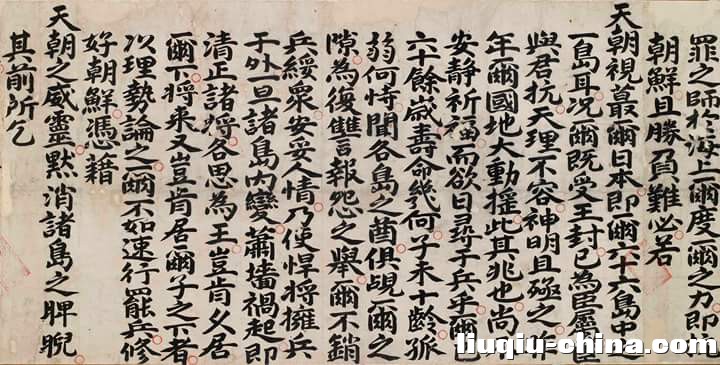 罪之師於海上爾度爾之力即北
朝鮮且勝負難必若
天朝視蕞爾日本即爾六十六島中之
一島耳況爾既受王封已為臣屬臣
與君抗天理不容神明且殛之昨
年爾國地大動搖此其兆也尚
安靜祈福而欲日尋于兵乎爾已
六十餘歲壽命幾何子未十齡孤
弱何恃聞各島之酋俱覘爾之
隙為復讐報怨之舉爾不銷
兵綏衆安妥人情乃使悍將擁兵
于外一旦諸島內變蕭墻禍起即
清正諸將各思為王豈肯久居
爾下將來又豈肯居爾子之下者
以理勢論之爾不如速行罷兵修
好朝鮮憑藉
天朝之威靈默消諸島之睥睨
其前所乞
liuqiu-china.com